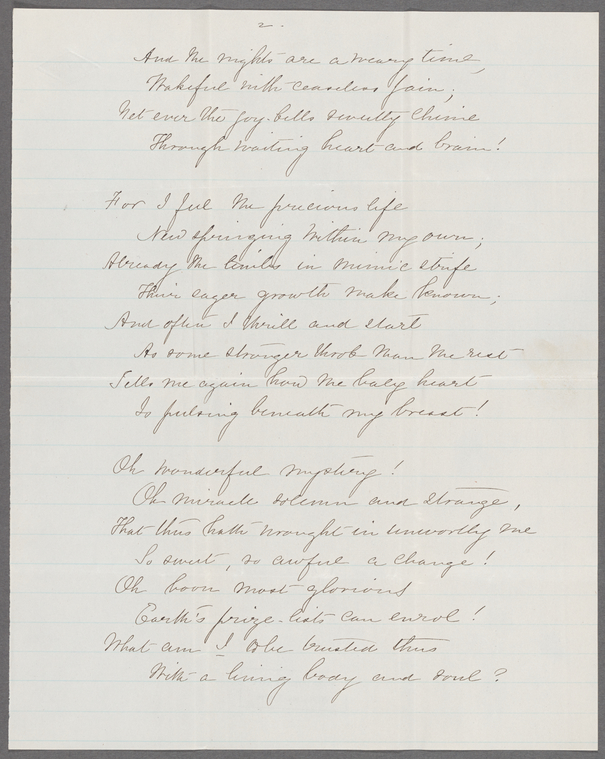 2.
And the nights are a weary time,
Wakeful with ceaseless pain;
Yet ever the joy-bells sweetly chime
Through waiting heart and brain!
For I feel the precious life
New springing within my own;
Already the limbs in mimic strife
Their eager growth make known;
And often I thrill and start
As some stronger throb than the rest
Tells me again how the baby heart
Is pulsing beneath my breast!
Oh wonderful mystery!
Oh miracle solemn and strange,
That thus hath wrought in unworthy me
So sweet, so awful a change!
Oh boon most glorious
Earth's prize-lists can enrol!
What am I to be trusted thus
With a living body and soul?